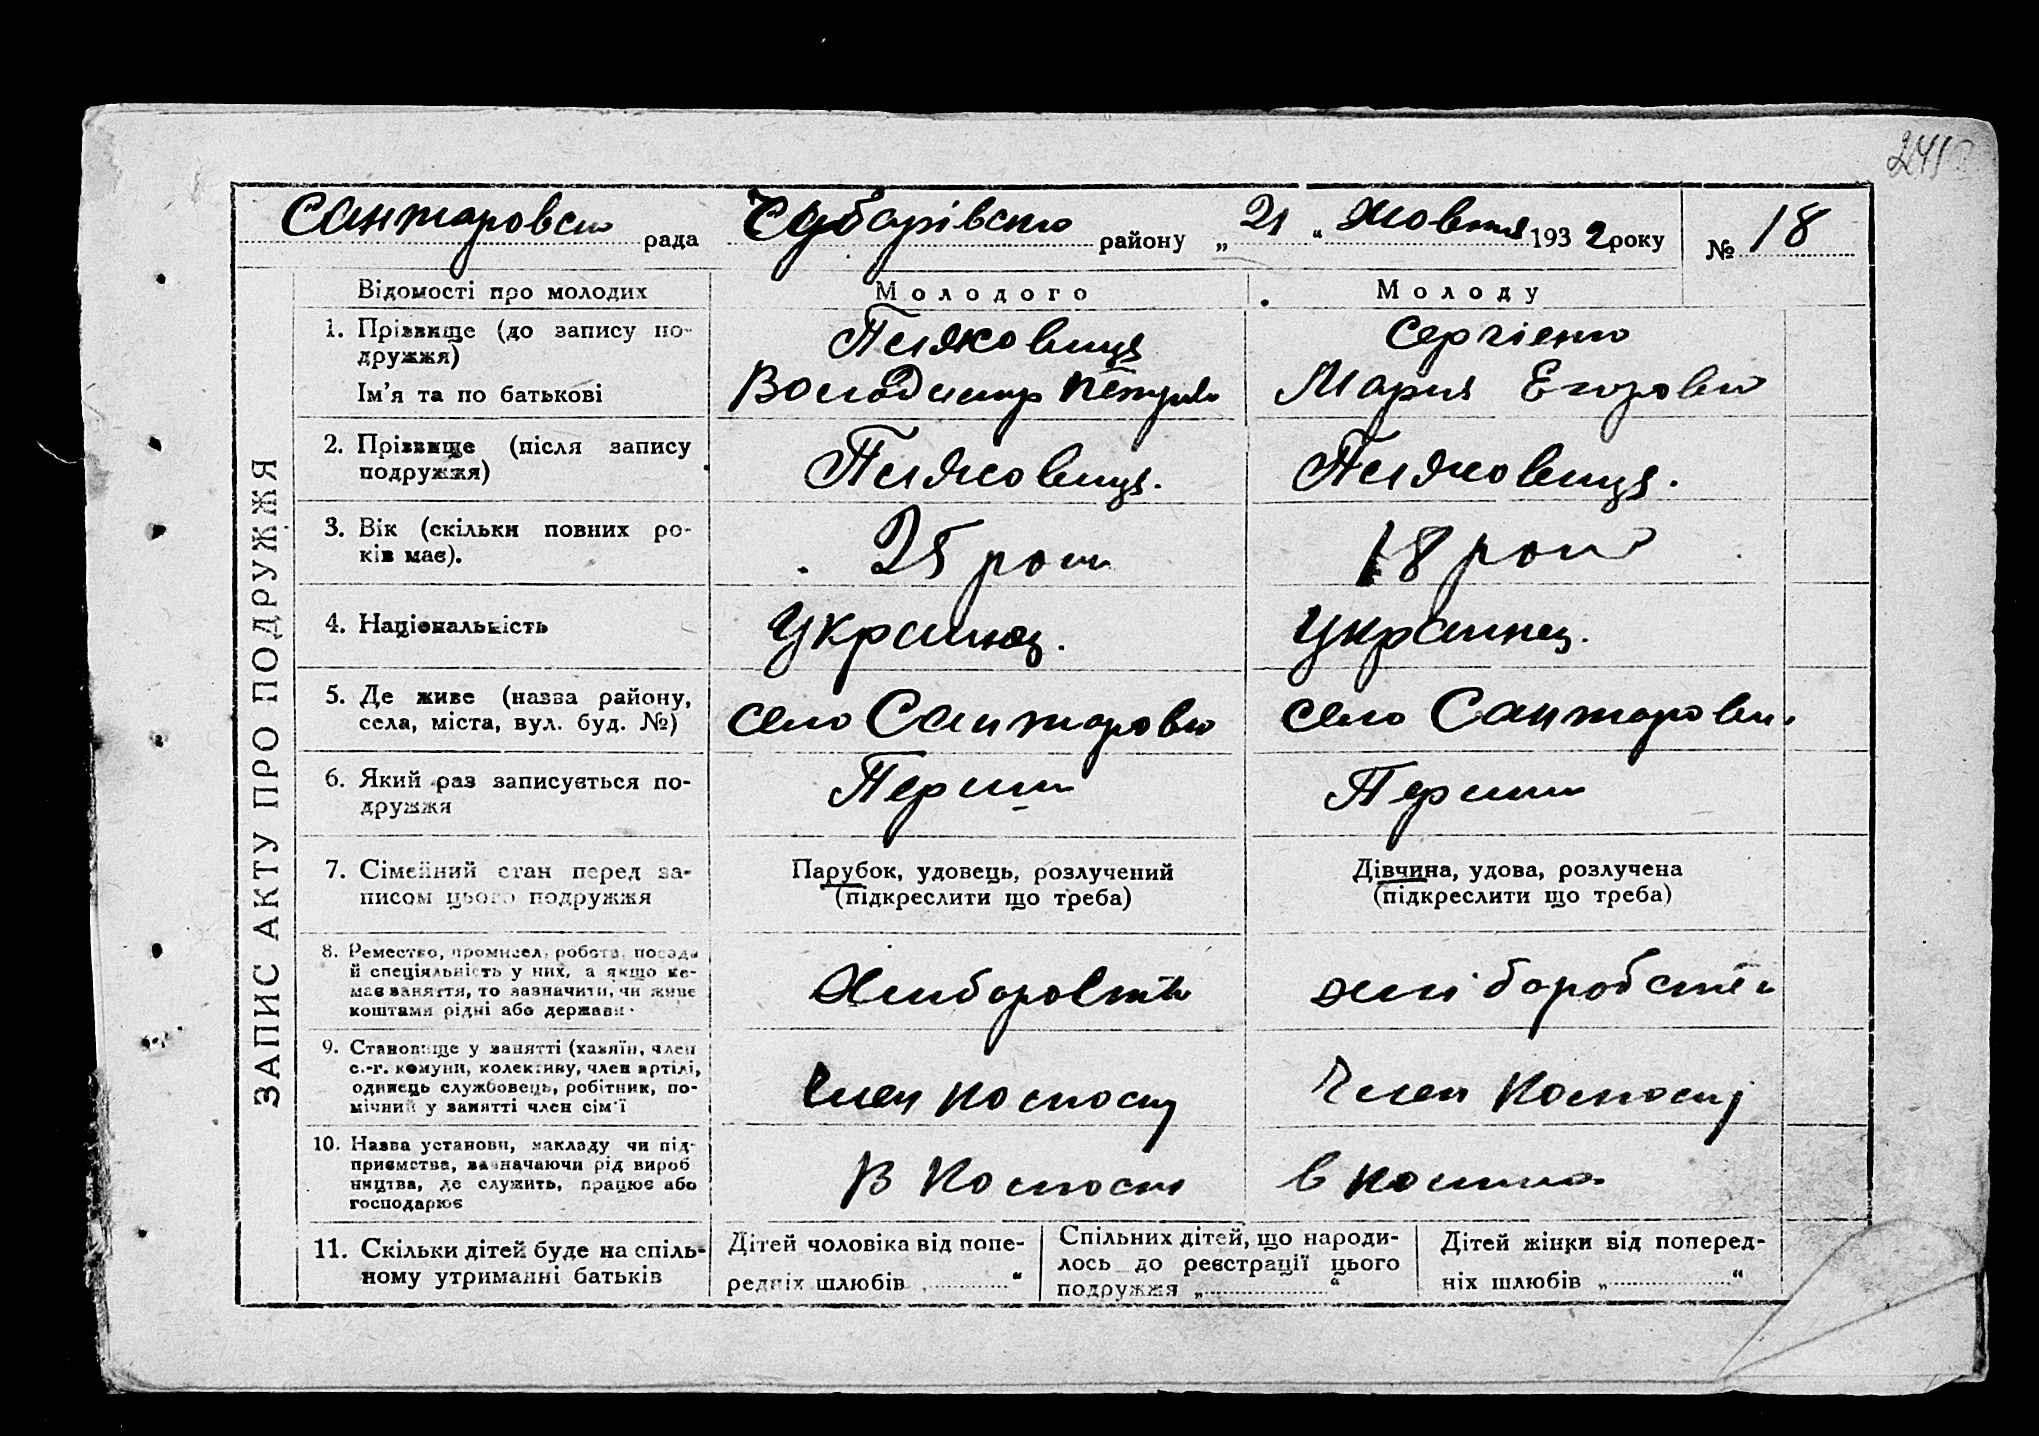 241
Сантаровсько рада Чубарівсько району „ 21 “ Жовтня 1932 року № 18
ЗАПИС АКТУ ПРО ПОДРУЖЖЯ
Відомості про молодих
Молодого
Молоду
1. Прізвище (до запису по-
дружжя)
Ім'я та по батькові
Сергіенко
Володимир Петров
Мария Егоровна
2. Прізвище (після запису
подружжя)
3. Вік (скільки повних ро-
ків має).
25 роки
18 роки
4. Національність
Украинец.
Украинец.
5. Де живе (назва району,
села, міста, вул. буд. №)
село
село
6. Який раз записується по-
дружжя
Перший
Перший
7. Сімейний стан перед за-
писом цього подружжя
Парубок, удовець, розлучений
(підкреслити що треба)
Дівчина, удова, розлучена
(підкреслити що треба)
8. Ремество, промисел, робота, посада
й спеціяльність у них, а якщо не-
має заняття, то зазначити, чи живе
коштами рідні або держави.
9. Становище у занятті (хазяїн, член
с.-г. комуни, колективу, член артілі,
одинець службовець, робітник, по-
мічний у занятті член сім'ї
Член
Член
10. Назва установи, закладу чи під-
приємства, зазначаючи рід вироб
ництва, де служить, працює або
господарює
В
в
11. Скільки дітей буде на спіль-
ному утриманні батьків
Дітей чоловіка від попе-
редніх шлюбів „ “
Спільних дітей, що народи-
лось до реєстрації цього
подружжя „ “
Дітей жінки від поперед-
ніх шлюбів „ “